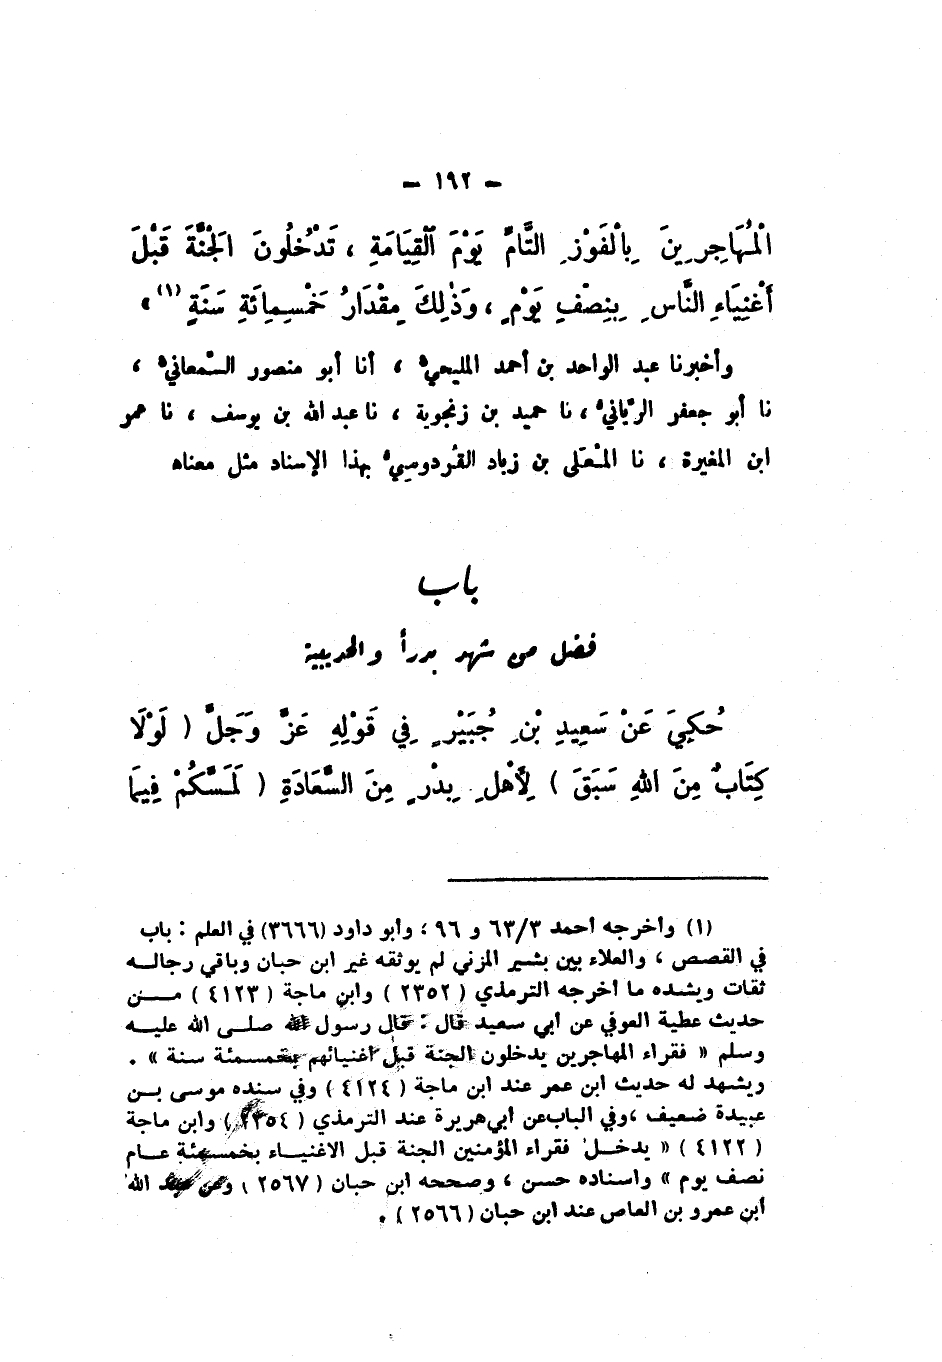 – ١٩٢ –
الْمُهَاجِرِينَ بِالْفَوْزِ التَّامِّ يَوْمَ الْقِيَامَةِ ، تَدْخُلُونَ الْجَنَّةَ قَبْلَ
أَغْنِيَاءِ النَّاسِ بِنِصْفِ يَوْمٍ ، وَذٰلِكَ مِقْدَارُ خَمْسِمِائَةِ سَنَةٍ (١) »
وأخبرنا عبد الواحد بن أحمد المليحيُّ ، أنا أبو منصور السَّمعانيُّ ،
نا أبو جعفر الرَّيانيُّ ، نا حميد بن زنجوية ، نا عبد الله بن يوسف ، نا عمر
ابن المغيرة ، نا المُعَلى بن زياد القُردوسِيُّ بهذا الإسناد مثل معناه
باب
فضل من شهد بدراً والحديبية
حُكِيَ عَنْ سَعِيدِ بْنِ جُبَيْرٍ فِي قَوْلِهِ عَزَّ وَجَلَّ ( لَوْلَا
كِتَابٌ مِنَ اللهِ سَبَقَ ) لِأَهْلِ بِدْرٍ مِنَ السَّعَادَةِ ( لَمَسَّكُمْ فِيمَا
(١) وأخرجه أحمد ٦٣/٣ و ٩٦ ، وأبو داود (٣٦٦٦) في العلم : باب
في القصص ، والعلاء بين بشير المزني لم يوثقه غير ابن حبان وباقي رجاله
ثقات ويشده ما أخرجه الترمذي ( ٢٣٥٢ ) وابن ماجة ( ٤١٢٣ ) من
حديث عطية العوفي عن أبي سعيد قال : قال رسول الله صلى الله عليه
وسلم « فقراء المهاجرين يدخلون الجنة قبل أغنيائهم بخمسمئة سنة » .
ويشهد له حديث ابن عمر عند ابن ماجة ( ٤١٢٤ ) وفي سنده موسى بن
عبيدة ضعيف ،وفي الباب عن أبي هريرة عند الترمذي ( ٢٣٥٤ ) وابن ماجة
( ٤١٢٢ ) « يدخل فقراء المؤمنين الجنة قبل الاغنياء بخمسمئة عام
نصف يوم » واسناده حسن ، وصححه ابن حبان ( ٢٥٦٧ ) وعن عبد الله
ابن عمرو بن العاص عند ابن حبان ( ٢٥٦٦ ) .